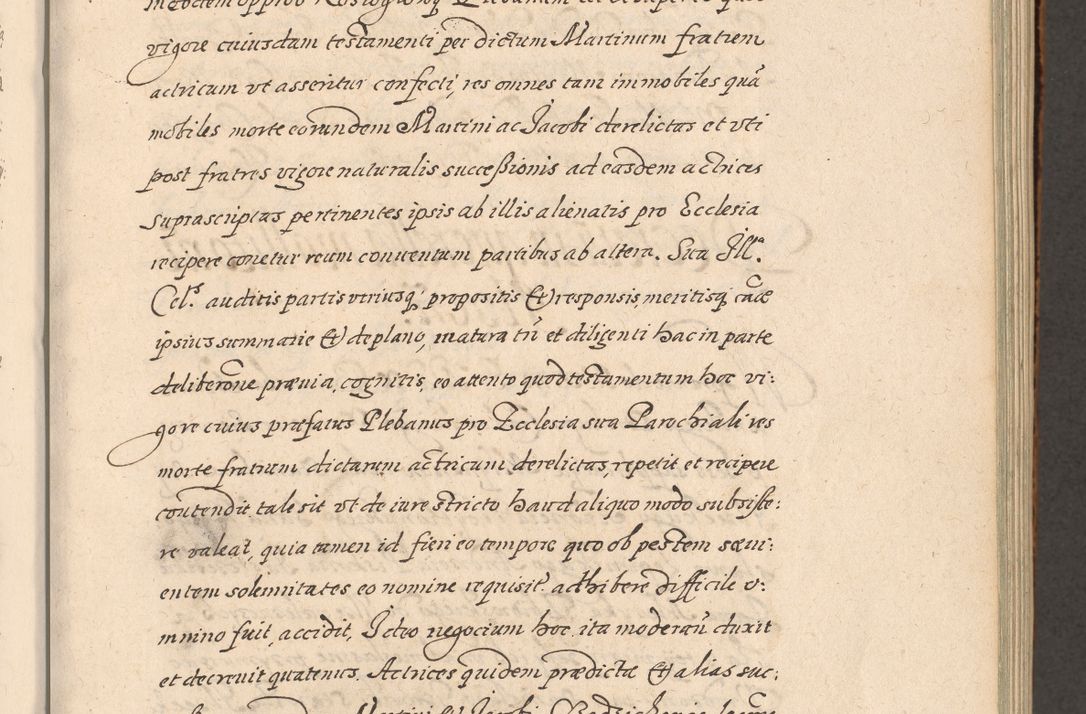 vigore cuiusdam testamenti per dictum Martinum fratrem
actricum vt asseritur confecti, res omnes tam immobiles quã
mobiles morte eorundem Martini ac Jacobi derelictas et vti
post fratres vigore naturalis successionis ad easdem actrices
suprascriptas pertinentes ipsis ab illis alienatis pro Ecclesia
recipere conetur reum conuentum partibus ab altera. Sua Ill.ª
Cel.s auditis partis vtriusq propositis et responsis, meritisq cãæ
ipsius summarie et de plano, matura tñ et diligenti hac in parte
deliberõne præuia, cognitis, eo attento quod testamentum hoc vi:
gore cuius præfatus Plebanus pro Ecclesia sua Parochiali res
morte fratrum dictarum actricum derelictas, repetit et recipere
contendit tale sit vt de iure stricto haud aliquo modo subsiste:
re valeat, quia tamen id fieri eo tempore quo ob pestem sæui:
entem solemnitates eo nomine requisit. adhibere difficile o:
mnino fuit, accidit, Ideo negocium hoc ita moderañ duxit
et decreuit quatenus. Actrices quidem prædictæ et alias suc: